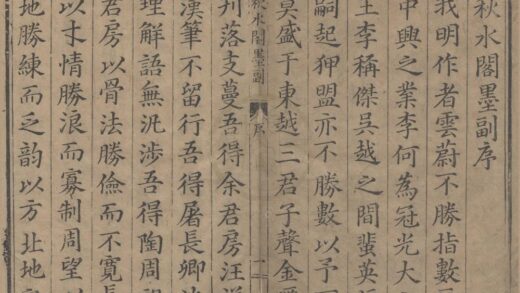 秋水閣墨副序
我明作者雲蔚不勝指數
中興之業李何為冠光大
王李稱傑吳越之間蜚英
嗣起狎盟亦不勝數以予
莫盛于東越三君子聲金
秋水閣墨副 序 一
刋落支蔓吾得余君房汪
漢筆不留行吾得屠長卿
理解語無汎涉吾得陶周
君房以骨法勝儉而不寬長
以才情勝浪而寡制周望以
地勝練而乏韵以方北地